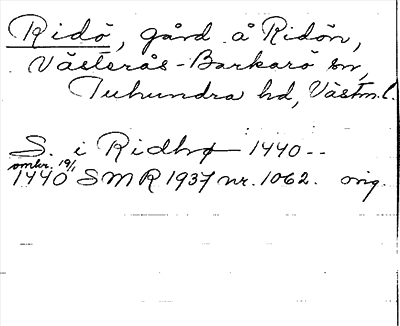 Ridö, gård å Ridön,
Västerås-Barkarö sn,
Tuhundra hd, Västm.l.
S. i Ridhø 1440--
omkr. 19/1
1440 SMR 1937 nr. 1062. orig.